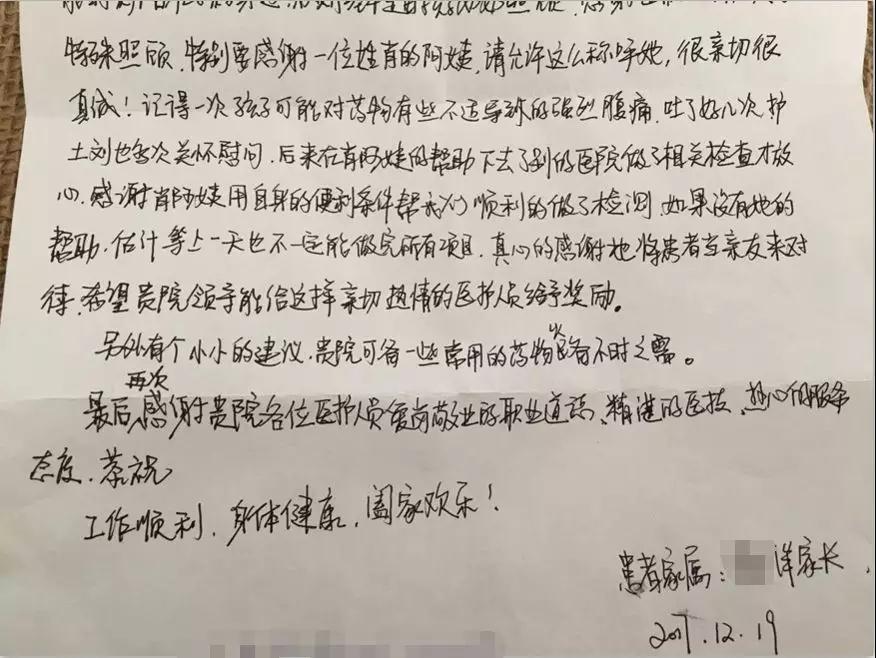 特殊照顾，特别要感谢一位姓肖的阿姨，请允许这么称呼她，很亲切很
真诚！记得一次孩子可能对药物有些不适导致的强烈腹痛，吐了好几次，护
士刘也多次关怀慰问，后来在肖阿姨的帮助下去了别的医院做了相关检查才放
心。感谢肖阿姨用自身的便利条件帮我们顺利的做了检测，如果没有她的
帮助，估计等上一天也不一定能做完所有项目，真心的感谢她将患者当亲友来对
待，希望贵院领导能给这样亲切热情的医护人员给予奖励。
另外有个小小的建议，贵院可备一些常用的药物以备不时之需。
最后再次感谢贵院各位医护人员爱岗敬业的职业道德、精湛的医技、热心的服务
态度，恭祝
工作顺利，身体健康，阖家欢乐！
患者家属：洋家长
2017.12.19